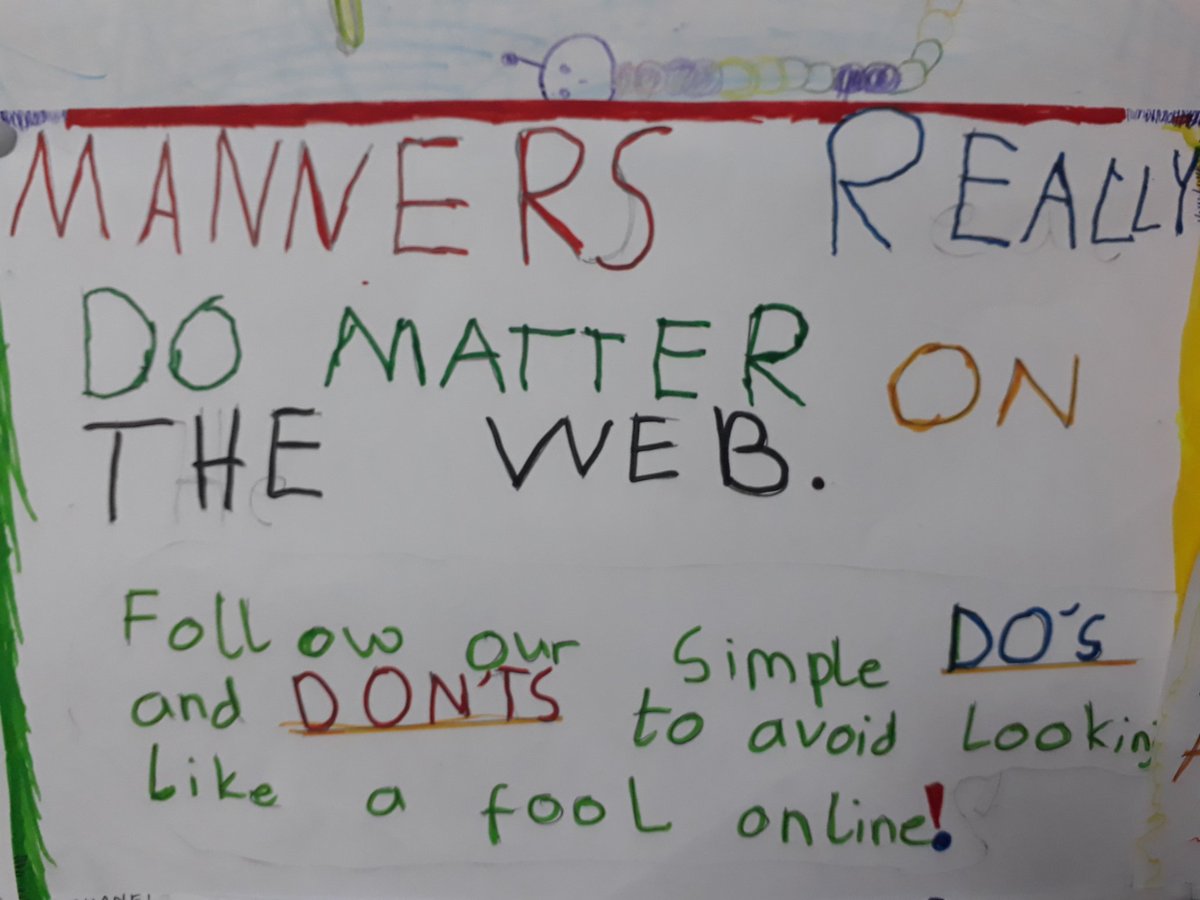 MANNERS REALLY
DO MATTER ON
THE WEB.
Follow our simple DO'S
and DON'TS to avoid Looking
Like a fool online!